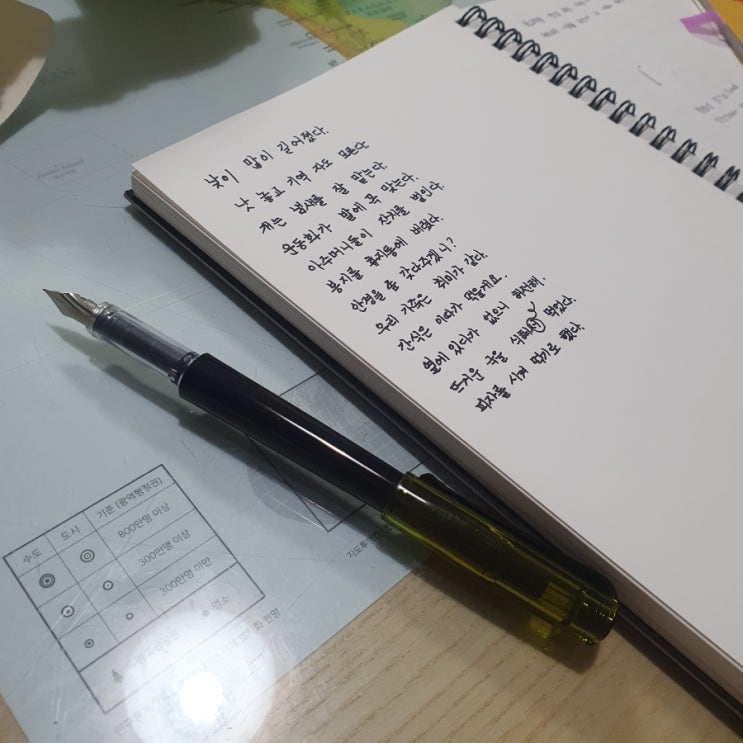 낮이 많이 길어졌다.
낫 놓고 기역 자도 모른다
개는 냄새를 잘 맡는다.
운동화가 발에 꼭 맞는다.
아주머니들이 잔치를 벌인다.
봉지를 휴지통에 버렸다.
안경을 좀 갖다주겠니?
우리 가족은 취미가 같다.
간식은 이따가 먹을게요.
옆에 있다가 없으니 허전해.
뜨거운 국을 식혀 먹었다.
피자를 시켜 먹기로 했다.
수도 도시 기준 (광역행정권)
800만명 이상
300만명 이상
300만명 미만
명소